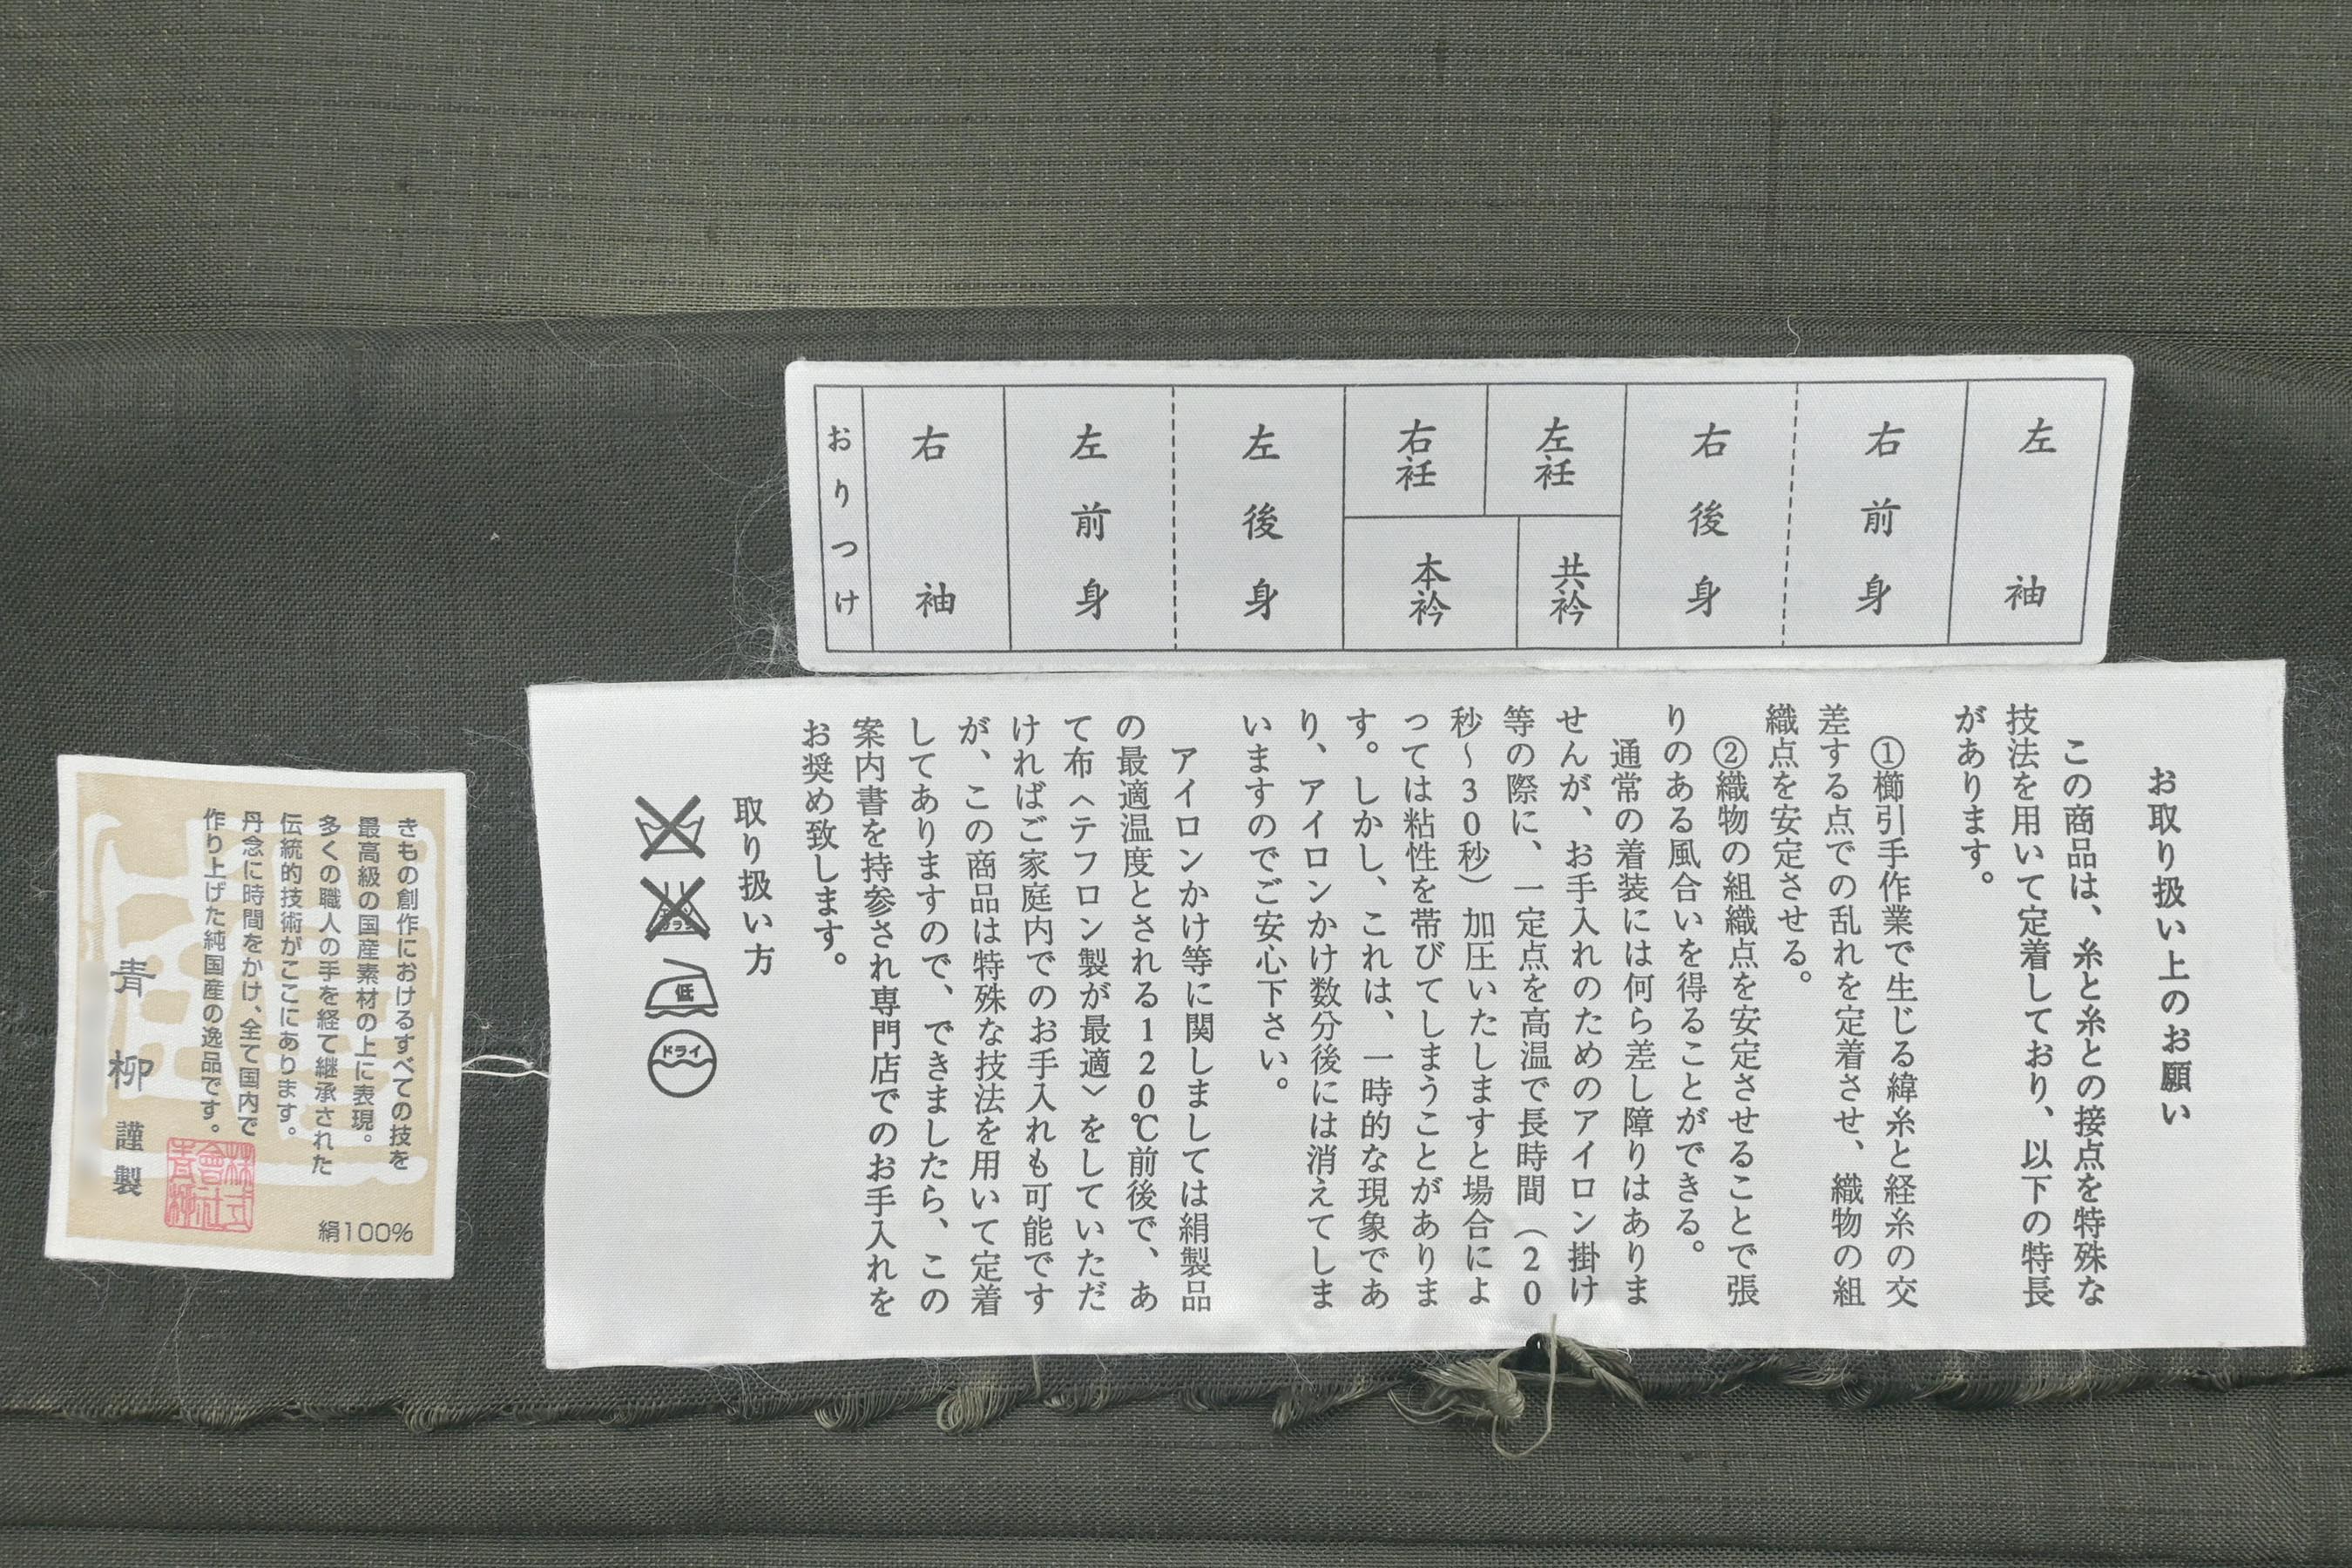 左袖
右前身
右後身
左衽
右衽
共衿
本衿
左後身
左前身
右袖
おりつけ
お取り扱い上のお願い
この商品は、糸と糸との接点を特殊な
技法を用いて定着しており、以下の特長
があります。
①櫛引手作業で生じる緯糸と経糸の交
差する点での乱れを定着させ、織物の組
織点を安定させる。
②織物の組織点を安定させることで張
りのある風合いを得ることができる。
通常の着装には何ら差し障りはありま
せんが、お手入れのためのアイロン掛け
等の際に、一定点を高温で長時間（20
秒～30秒）加圧いたしますと場合によ
っては粘性を帯びてしまうことがありま
す。しかし、これは、一時的な現象であ
り、アイロンかけ数分後には消えてしま
いますのでご安心下さい。
アイロンかけ等に関しましては絹製品
の最適温度とされる120℃前後で、あ
て布〈テフロン製が最適〉をしていただ
ければご家庭内でのお手入れも可能です
が、この商品は特殊な技法を用いて定着
してありますので、できましたら、この
案内書を持参され専門店でのお手入れを
お奨め致します。
取り扱い方
エンソサラシ
低
ドライ
きもの創作におけるすべての技を
最高級の国産素材の上に表現。
多くの職人の手を経て継承された
伝統的技術がここにあります。
丹念に時間をかけ、全て国内で
作り上げた純国産の逸品です。
青柳謹製
株式
會社
青柳
絹100%